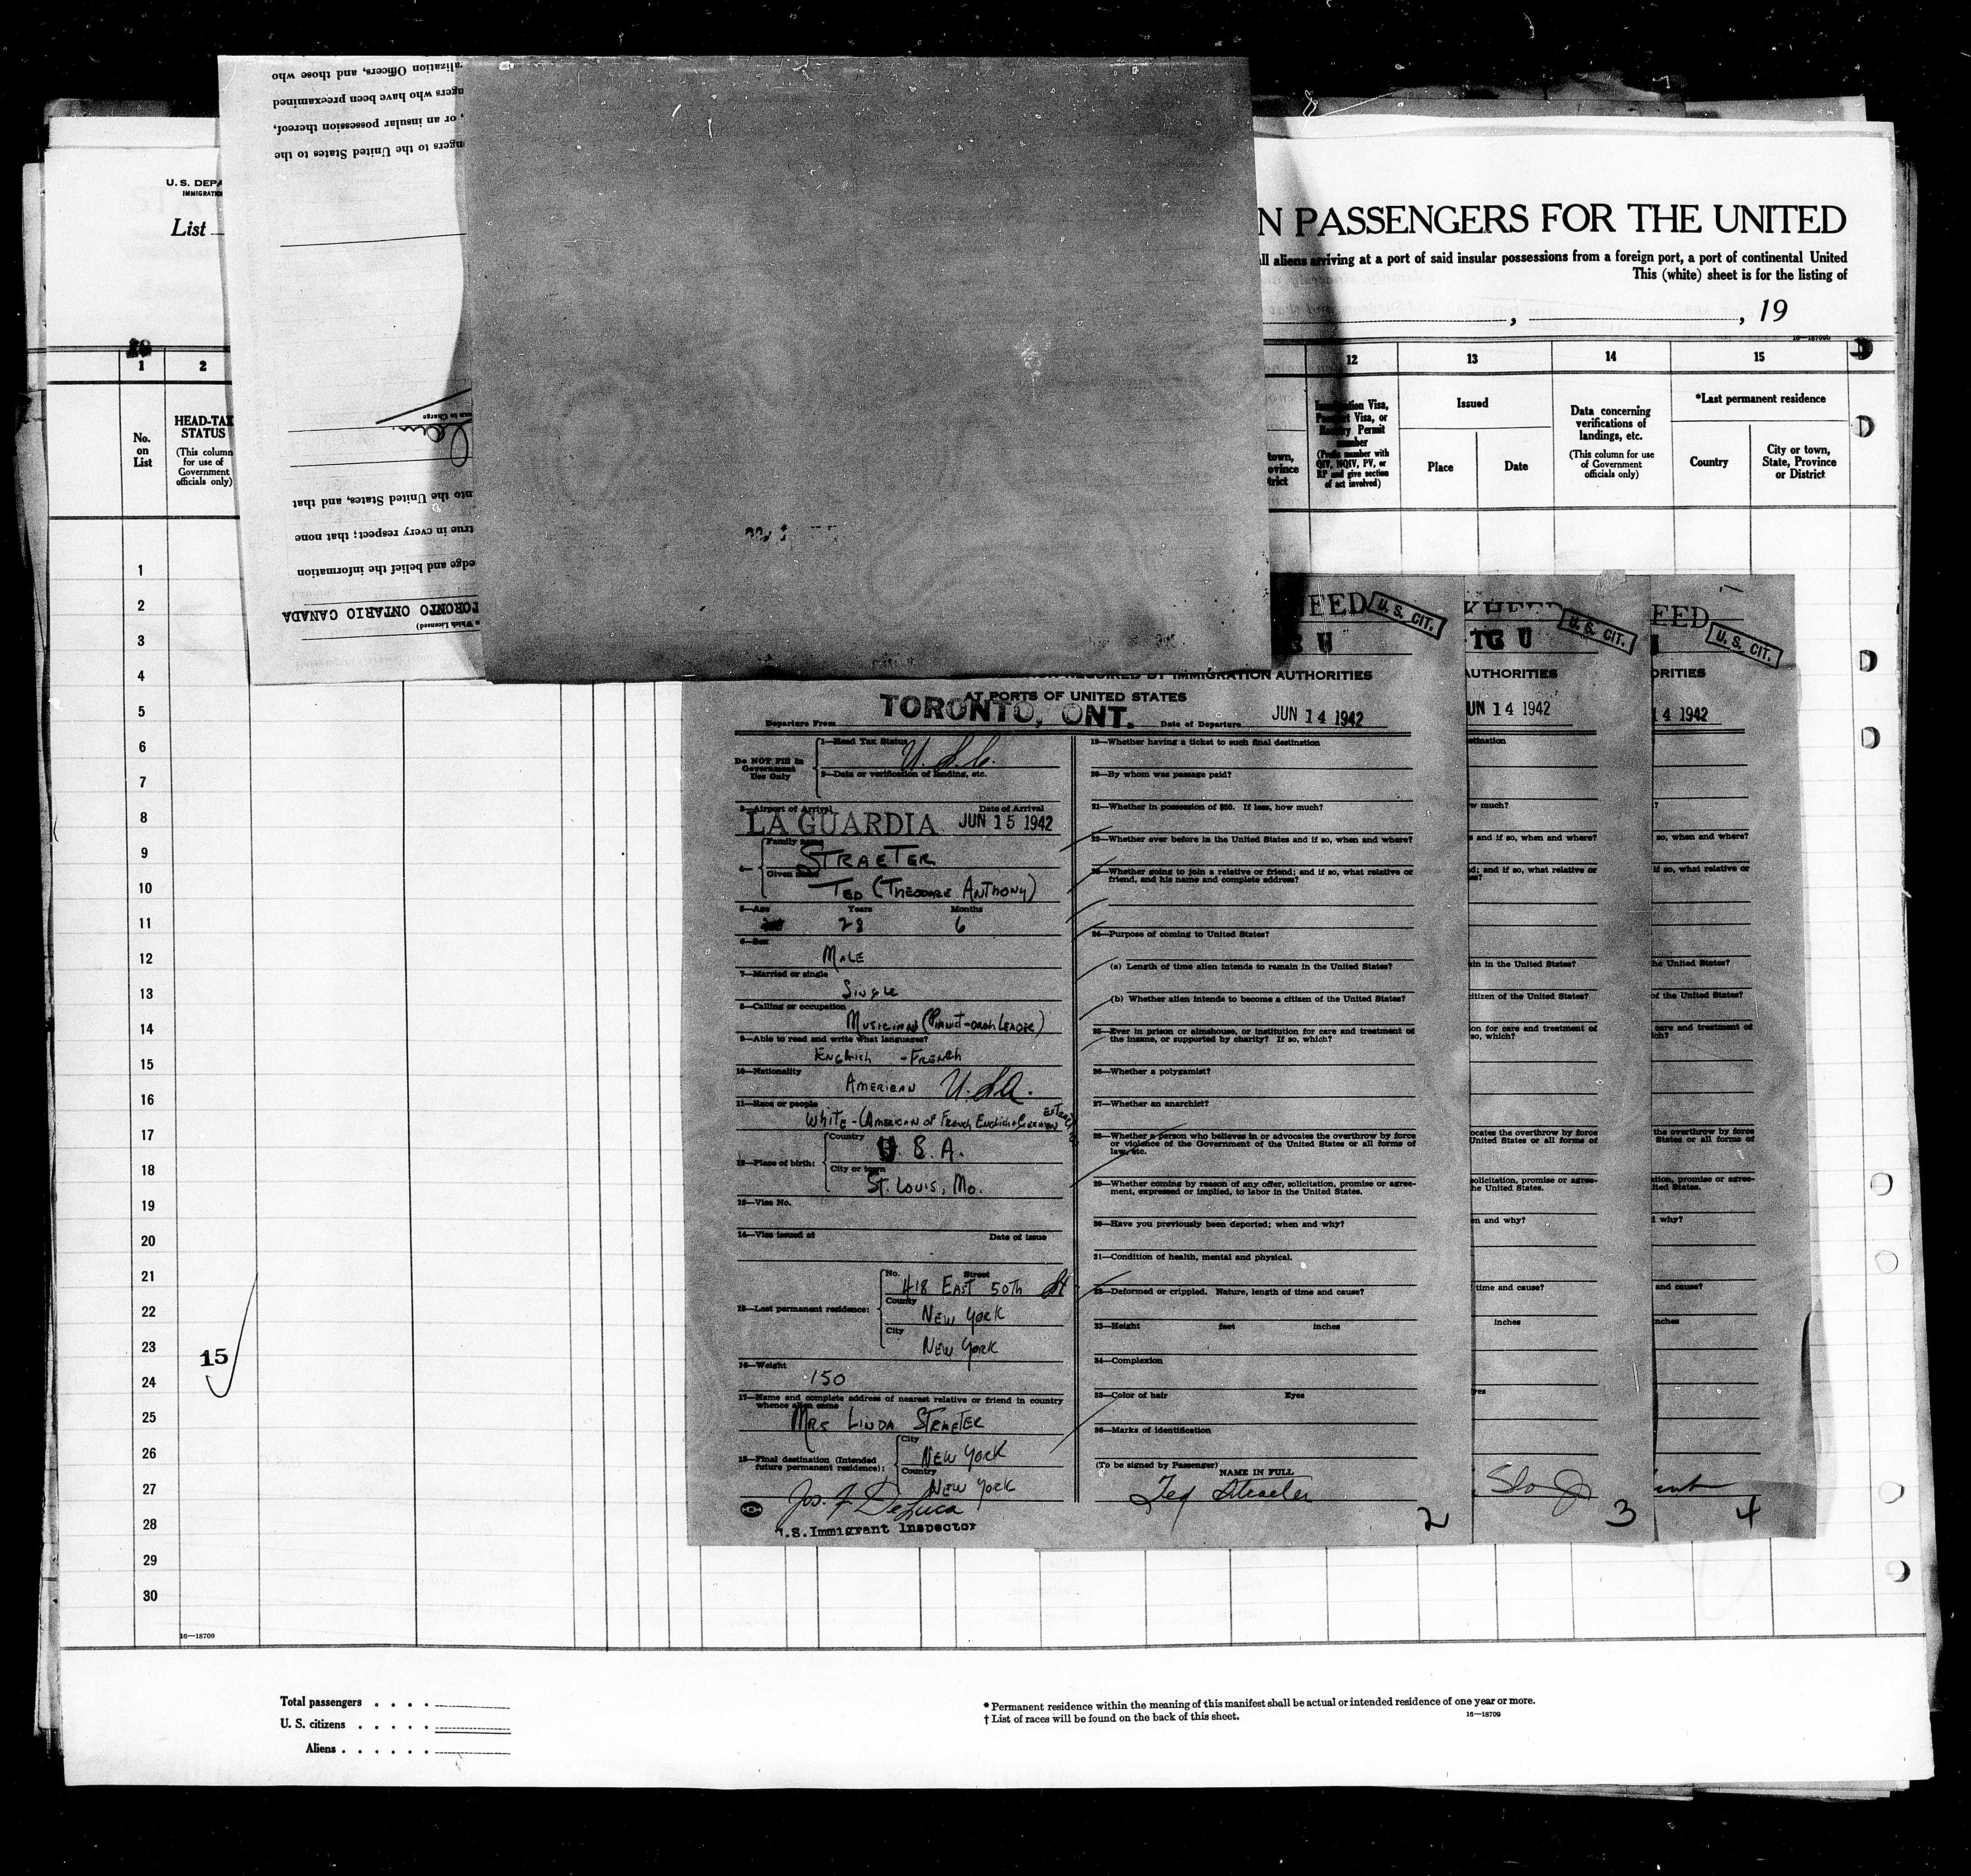 alization Officers, and those who
ngers who have been preexamined
, or an insular possession thereof,
ngers to the United States to the
man in Charge
nto the United States, and that
true in every respect; that none
edge and belief the information
TORONTO ONTARIO CANADA
Which Licensed)
U. S. DEPA
IMMIGRATIO
List
N PASSENGERS FOR THE UNITED
ll aliens arriving at a port of said insular possessions from a foreign port, a port of continental United
This (white) sheet is for the listing of
, , 19
16—18709b
1 2 12 13 14 15
No. on List
HEAD-TAX STATUS
(This column for use of Government officials only)
town,
ovince
trict
Immigration Visa, Passport Visa, or Reentry Permit number
(Prefix number with QIV, NQIV, PV, or RP and give section of act involved)
Issued
Place
Date
Data concerning verifications of landings, etc.
(This column for use of Government officials only)
*Last permanent residence
Country
City or town, State, Province or District
1
2
3
4
5
6
7
8
9
10
11
12
13
14
15
16
17
18
19
20
21
22
23
24
25
26
27
28
29
30
15
16—18709
EED U. S. CIT.
G U
REQUIRED BY IMMIGRATION AUTHORITIES
AT PORTS OF UNITED STATES
Departure From TORONTO, ONT. Date of Departure JUN 14 1942
Do NOT Fill In Government Use Only
1—Head Tax Status U.S.C.
2—Data or verification of landing, etc.
3—Airport of Arrival Date of Arrival
LA GUARDIA JUN 15 1942
4— Family name STRAETER
Given name TED (THEODORE ANTHONY)
5—Age Years Months
28 6
6—Sex
MALE
7—Married or single
SINGLE
8—Calling or occupation
MUSICIAN (PIANIST-ORCH LEADER)
9—Able to read and write what languages?
ENGLISH - FRENCH
10—Nationality
AMERICAN U.S.A.
11—Race or people
WHITE - (AMERICAN OF FRENCH ENGLISH + GERMAN EXTRACTION
12—Place of birth: Country U. S. A.
City or town
ST. LOUIS, MO.
13—Visa No.
14—Visa issued at Date of issue
15—Last permanent residence: No. Street
418 EAST 50TH St
County
NEW YORK
City
NEW YORK
16—Weight
150
17—Name and complete address of nearest relative or friend in country whence alien came
MRS LINDA STRAETER
18—Final destination (Intended future permanent residence): City
NEW YORK
Country
NEW YORK
Jos. F. DeLuca
U.S. Immigrant Inspector
19—Whether having a ticket to such final destination
20—By whom was passage paid?
21—Whether in possession of $50. If less, how much?
22—Whether ever before in the United States and if so, when and where?
23—Whether going to join a relative or friend; and if so, what relative or
friend, and his name and complete address?
24—Purpose of coming to United States?
(a) Length of time alien intends to remain in the United States?
(b) Whether alien intends to become a citizen of the United States?
25—Ever in prison or almshouse, or institution for care and treatment of
the insane, or supported by charity? If so, which?
26—Whether a polygamist?
27—Whether an anarchist?
28—Whether a person who believes in or advocates the overthrow by force
or violence of the Government of the United States or all forms of
law, etc.
29—Whether coming by reason of any offer, solicitation, promise or agree-
ment, expressed or implied, to labor in the United States.
30—Have you previously been deported; when and why?
31—Condition of health, mental and physical.
32—Deformed or crippled. Nature, length of time and cause?
33—Height feet inches
34—Complexion
35—Color of hair Eyes
36—Marks of identification
(To be signed by Passenger)
NAME IN FULL
Ted Straeter
2
U. S. CIT.
TG U
AUTHORITIES
UN 14 1942
stination
w much?
s and if so, when and where?
d; and if so, what relative or
ss?
ain in the United States?
citizen of the United States?
on for care and treatment of
so, which?
ocates the overthrow by force
United States or all forms of
solicitation, promise or agree-
he United States.
en and why?
time and cause?
inches
yes
3
EED
U. S. CIT.
ORITIES
14 1942
?
so, when and where?
if so, what relative or
he United States?
of the United States?
care and treatment of
ich?
the overthrow by force
States or all forms of
tation, promise or agree-
ited States.
why?
and cause?
nches
4
Total passengers . . . .
U. S. citizens . . . . .
Aliens . . . . . .
* Permanent residence within the meaning of this manifest shall be actual or intended residence of one year or more.
† List of races will be found on the back of this sheet.
16—18709